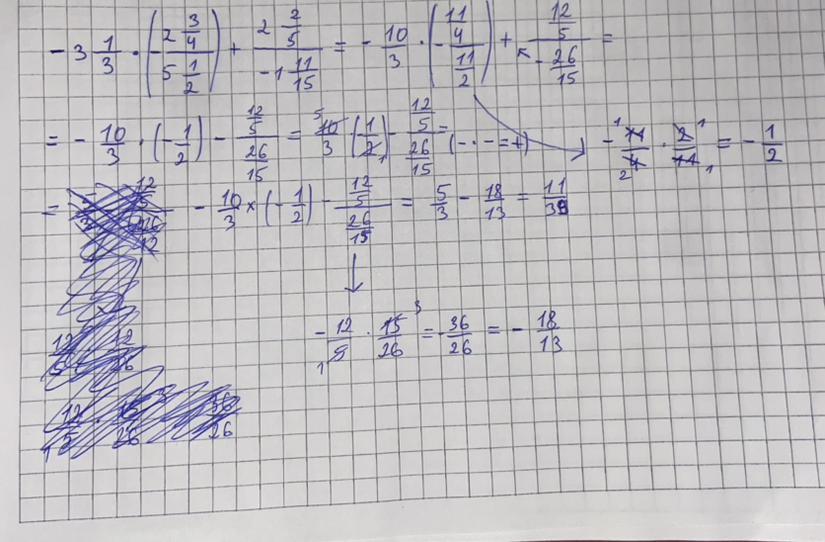 - 3 1/3 · (- 2 3/4 / 5 1/2) + 2 2/5 / -1 11/15 = - 10/3 · (- 11/4 / 11/2) + 12/5 / - 26/15 =
= - 10/3 · (- 1/2) - 12/5 / 26/15 = 5 10/3 · (1/2 1) - 12/5 / 26/15 = (- · - = +) - 1 11/4 2 · 2 1/11 1 = - 1/2
= - 10/3 × (- 1/2) - 12/5 / 26/15 = 5/3 - 18/13 = 11/39
- 12/5 1 · 15 3/26 = - 36/26 = - 18/13